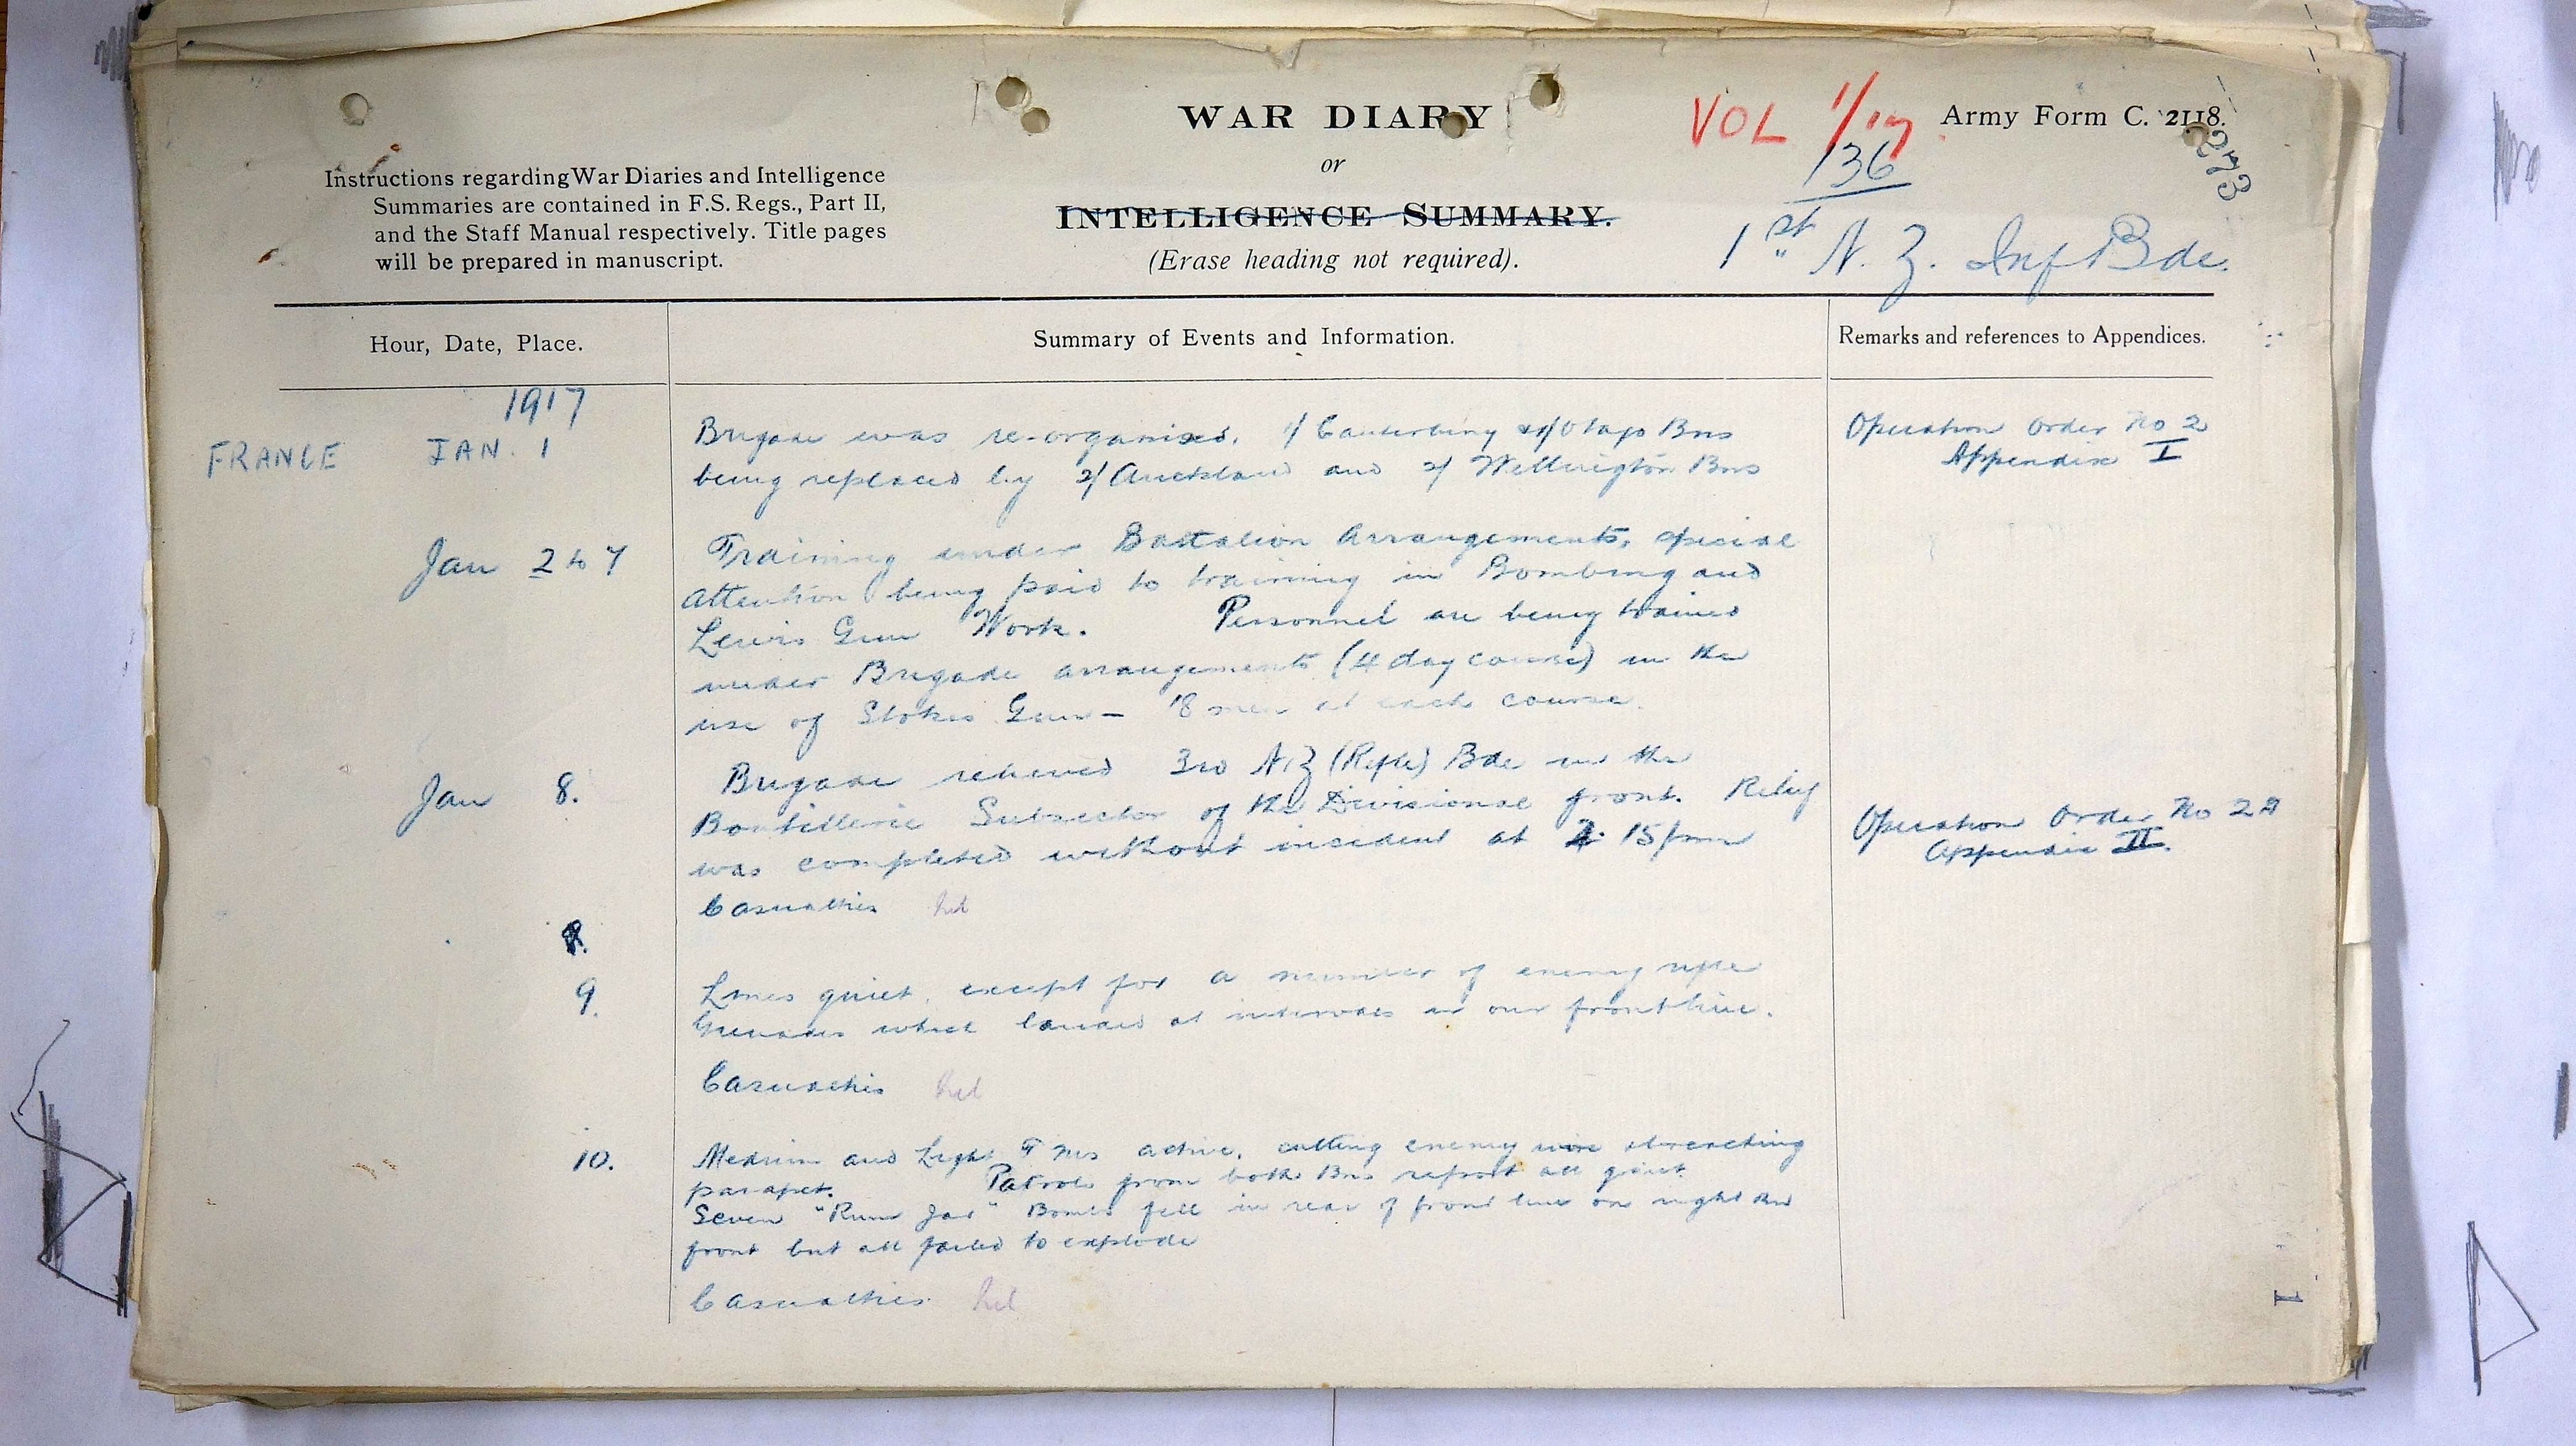 WAR DIARY
or
INTELLIGENCE SUMMARY.
(Erase heading not required).
Instructions regarding War Diaries and Intelligence
Summaries are contained in F.S. Regs., Part II,
and the Staff Manual respectively. Title pages
will be prepared in manuscript.
VOL 1/17
136
Army Form C. 2118.
273
1st N. Z. Inf Bde.
Hour, Date, Place.
Summary of Events and Information.
Remarks and references to Appendices.
1917
FRANCE JAN. 1
Brigade was re-organised. 1/ Canterbury & 1/ Otago Bns
being replaced by 2/ Auckland and 2/ Wellington Bns
Operation Order No 2
Appendix I
Jan 2 to 7
Training under Battalion Arrangements, special
attention being paid to training in Bombing and
Lewis Gun Work. Personnel are being trained
under Brigade arrangements (4 day course) in the
use of Stokes Gun - 18 men at each course.
Jan 8.
Brigade relieved 3rd N Z (Rifle) Bde in the
Boutillerie Subsector of the Divisional front. Relief
was completed without incident at 2. 15 pm
Operation Order No 22
Appendix II.
Casualties nil
9.
Lines quiet, except for a number of enemy rifle
Grenades which landed at intervals in our front line.
Casualties nil
10.
Medium and Light T Ms active, cutting enemy wire & breaching
parapet. Patrols from both Bns report all quiet.
Seven "Rum Jar" Bombs fell in rear of front line on right Bn
front but all failed to explode
Casualties nil
1